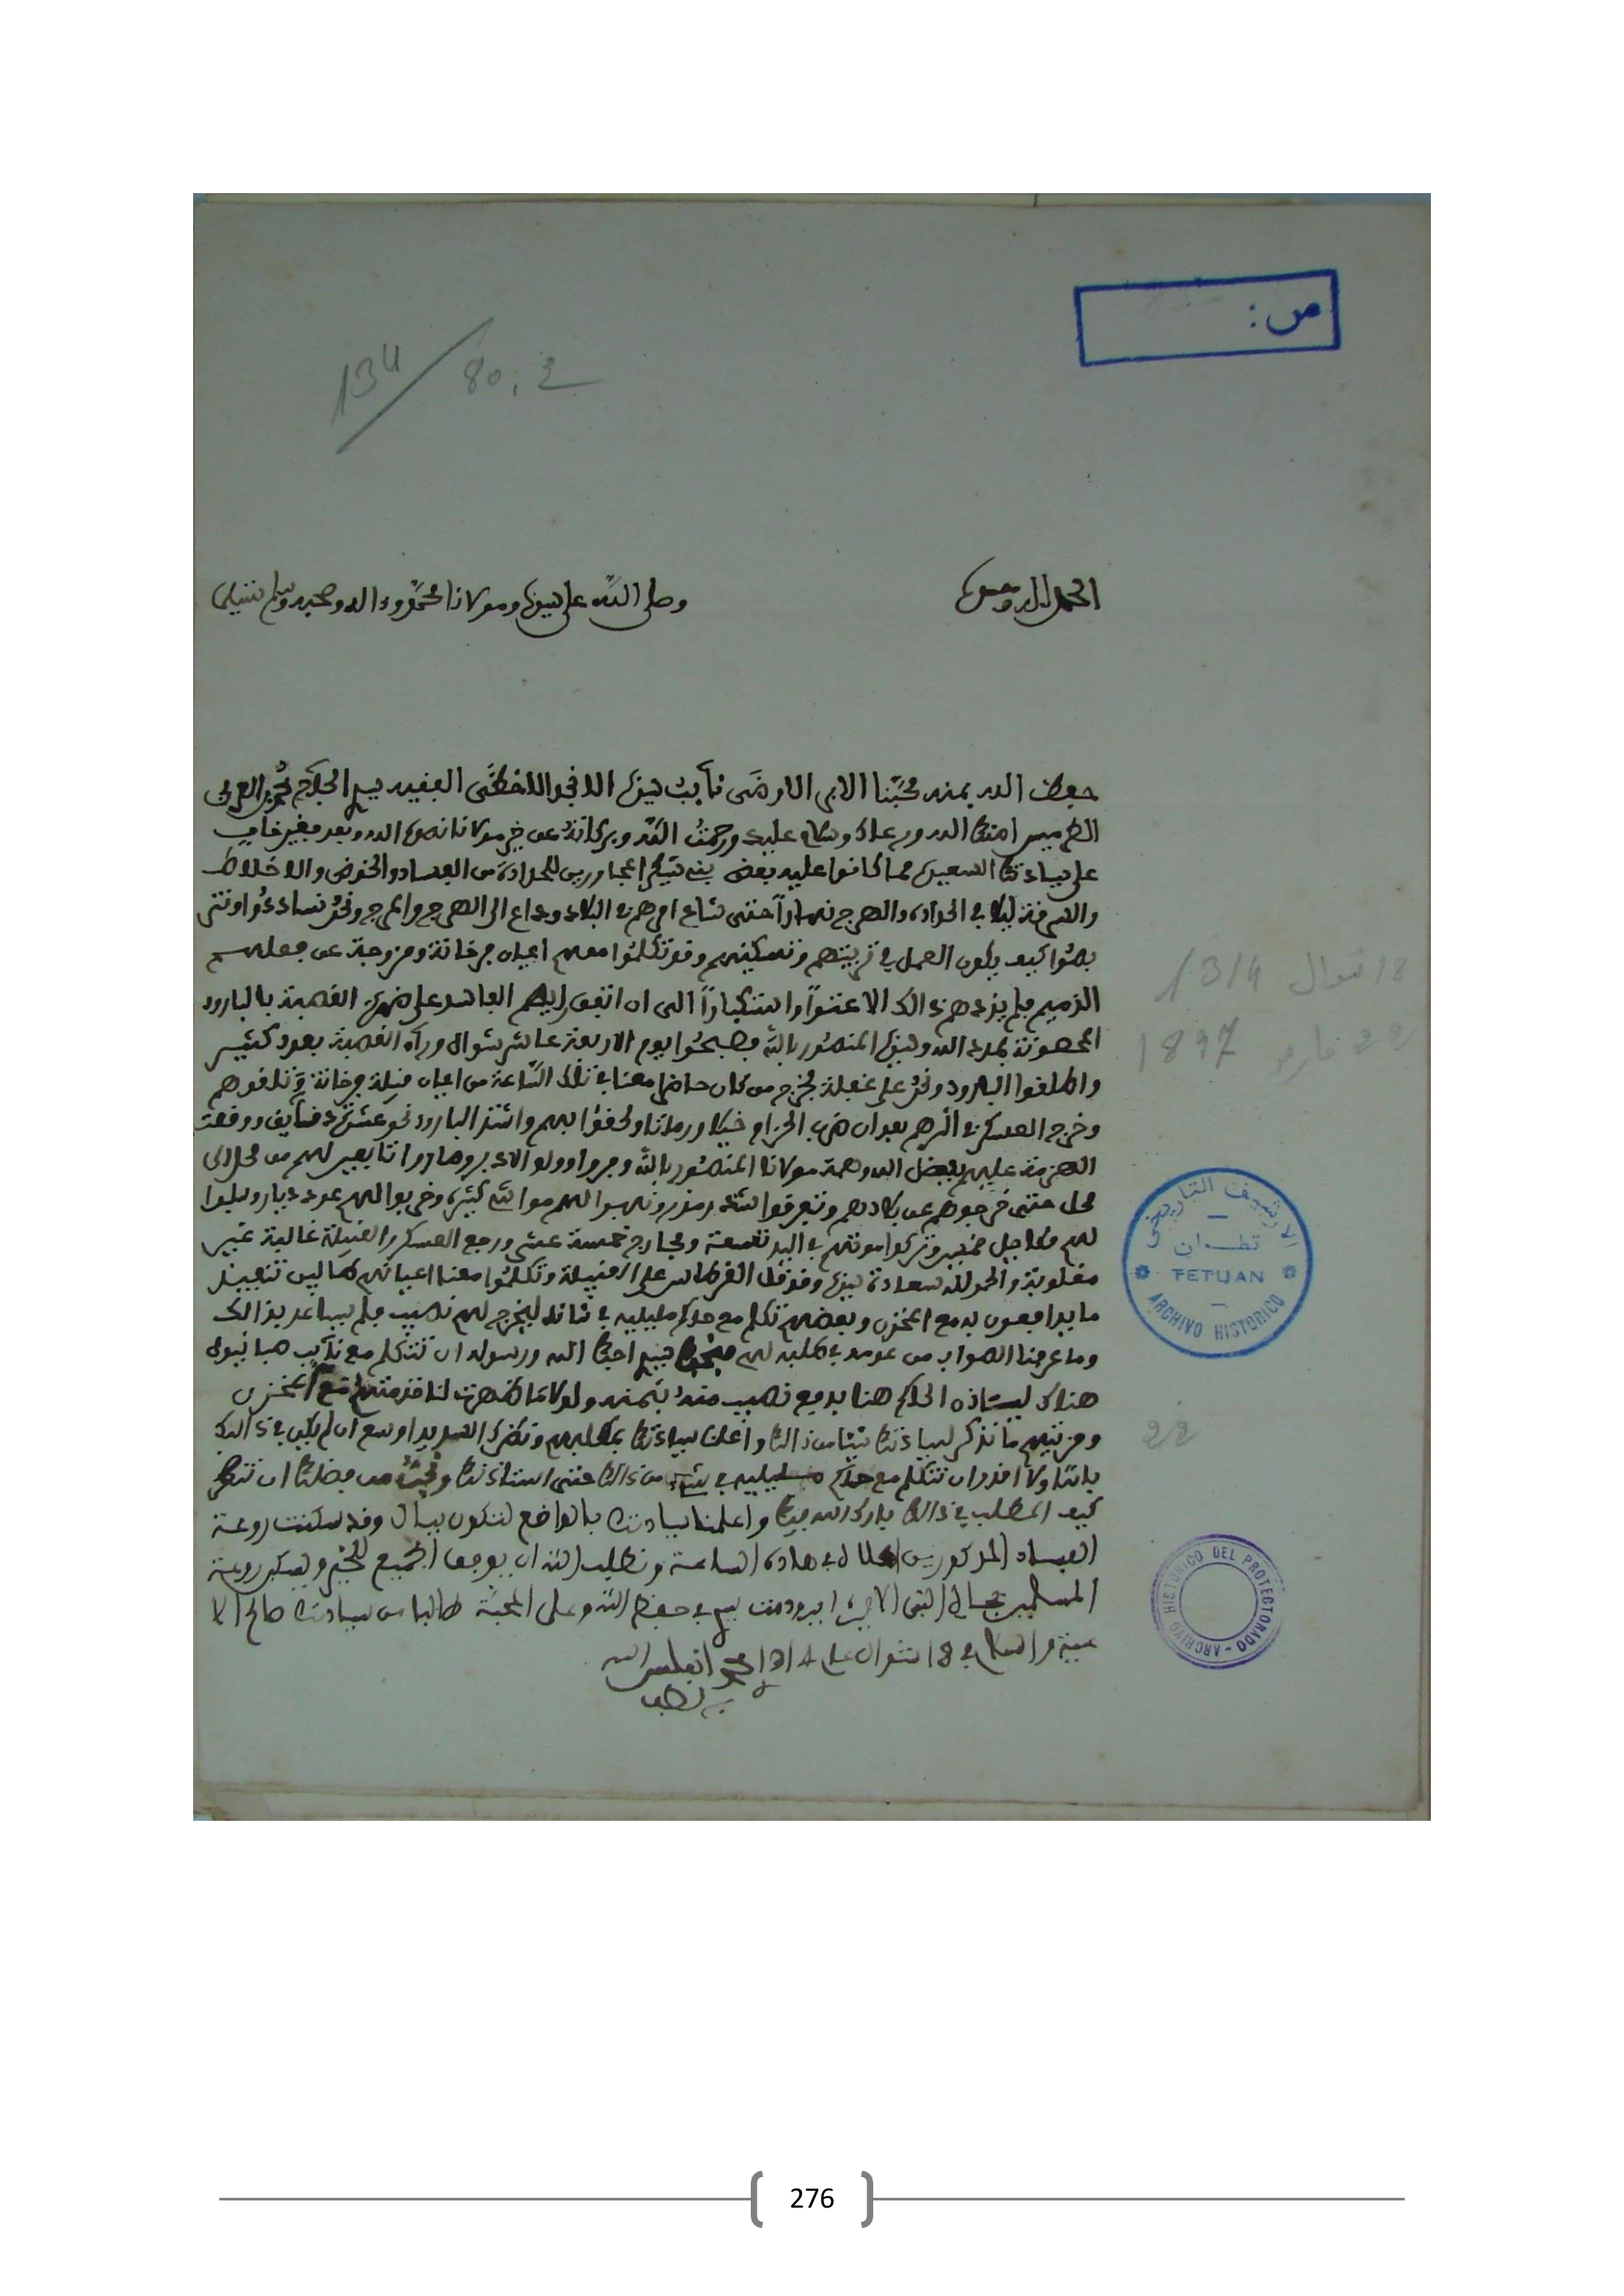 ص:
134/80.2
الحمد لله وحده
وصلى الله على سيدنا ومولانا محمد وءاله وصحبه وسلم تسليما
حفظ الله بمنه محبنا الابر الارضى نائب سيدنا الافخم الاحظى الفقيه سيد الحاج محمد العربي
الطريس امنك الله ورعاك وسلام عليك ورحمت الله وبركاته عن خير مولانا نصره الله وبعد فغير خاف
على سيادتك السعيدة مما كانوا عليه بعض بني شيكر المجاورين للحدادة من الفساد والخوض والاخلاط
والسرقة ليلا في الحدادة والهرج نهارا حتى شاع امرهم في البلاد وداع الى الهرج والمرج ونحن
كيف يكون العمل في تربيتهم وتسكينهم وقد تكلموا معهم اعيان فرخانة ومزوجة عن فعلهم
الذميم فلم يزدهم ذالك الا عتوا واستكبارا الى ان اتفق رايهم الفاسد على القصبة بالبارود
المحصونة بمدد الله وسيدنا المنصور بالله فصبحوا يوم الاربعة عاشر شوال وراء القصبة بعدد كثير
واطلقوا البارود ونحن على غفلة فخرج من كان حاضرا معنا في تلك الساعة من اعيان قبيلة فرخانة وتلاقوهم
وخرج العسكر في اثرهم بعد ان ضرب الحزام خيلا ورماتا ولحقوا بهم واشتد البارود نحو عشرة دقايق ووقعت
الهزيمة عليهم بفضل الله وهمة مولانا المنصور بالله وفروا وولو الادبر وصاروا تابعين لهم من محل الى
محل حتى خرجوهم عن بلادهم وتفرقوا ونهبوا لهم مواشي كثيرة وخربوا لهم عدد ديار
لهم وتركوا موتهم في اليد تسعة ومجارح خمسة عشر ورجع العسكر والقبيلة غالبة غير
مغلوبة والحمد لله بسعادة سيدنا وقد قل القرطاس على القبيلة وتكلموا معنا اعيانهم
ما يدافعون به مع المخزن وبعضهم تكلم مع حاكم مليلية في شانه ليخرج لهم نصيب فلم يساعد بذالك
وما عرفنا الصواب من عدمه في طلبه لهم سيد احبك الله ورسوله ان تتكلم مع نائب صبانيول
هناك الحاكم هنا بدفع نصيب منه بثمنه ولولا ما ظهرت لنا خدمتهم مع المخزن
ومزيتهم ما نذكر لسيادتك شيئا من ذالك واعلمنا سيادتك بطلبهم ونظرك السديد اوسع ان لم يكن في ذالك
باسا ولا اقدر ان نتكلم مع حاكم مليلية في شيء من ذالك حتى استاذنك من فضلك ان تنظر
كيف المطلب في ذالك بارك الله فيك واعلمنا سيادتك بالواقع لتكون ببال وقد سكنت روعة
الفساد المذكورين في هاذه الساعة ونطلب الله ان يوفق الجميع للخير ويسكن روعة
المسلمين بجاه النبي الامين ودمت في حفظ الله وعلى المحبة طالبا من سيادتك صالح الا
عية والسلام في 18 شوال عام 1314
18 شوال 1314
22 مارس 1897
22
الارشيف التاريخي
تطــوان
TETUAN
ARCHIVO HISTORICO
ARCHIVO HISTORICO DEL PROTECTORADO
276